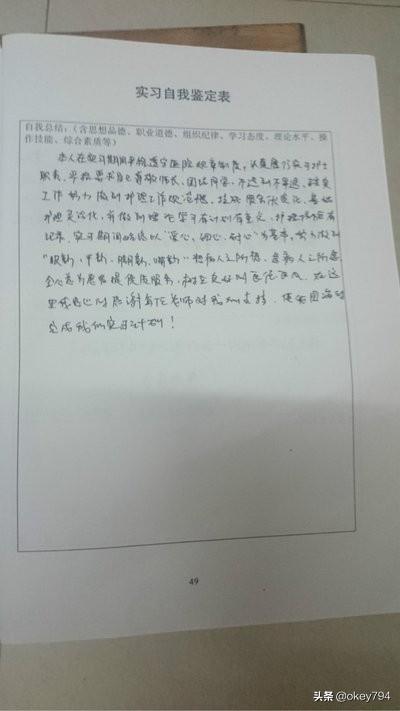 实习自我鉴定表
自我总结：（含思想品德、职业道德、组织纪律、学习态度、理论水平、操
作技能、综合素质等）
本人在实习期间严格遵守医院规章制度，认真履行实习护士
职责，严格要求自己尊敬师长，团结同学，不迟到不早退，踏实
工作努力做到护理工作规范化，技能服务优质化，基础
护理灵活化，并做到理论学习有计划有重点，护理措施有
记录，实习期间始终以“爱心，细心，耐心”为基本，努力做到
“眼勤，手勤，脚勤，嘴勤”想病人之所想，急病人之所急
全心意为患者提供优质服务，树立良好的医德医风。在这
里我衷心的感谢各位老师对我的支持，使我圆满的
完成我的实习计划！
49
头条 @okey794